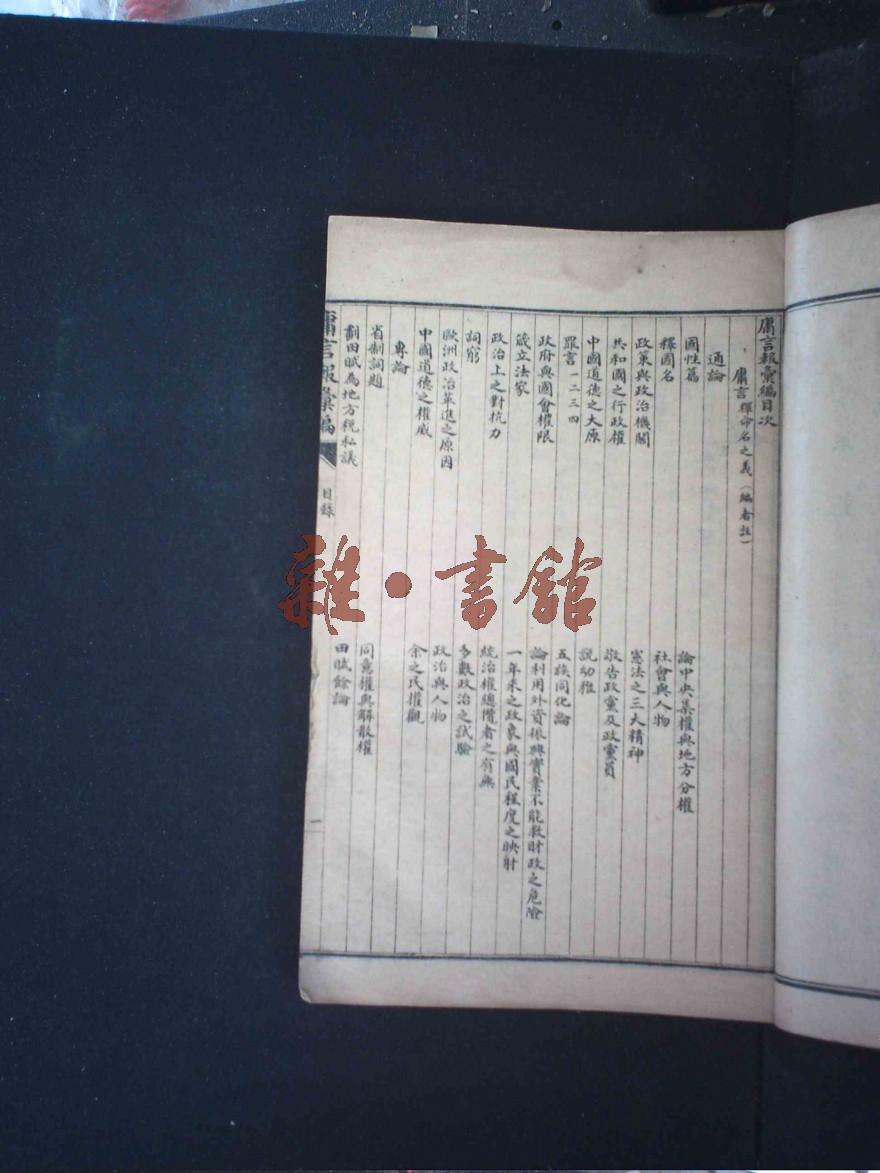 庸言報彙編目次
庸言 釋命名之義(編者註)
通論
國性篇
論中央集權與地方分權
釋國名
社會與人物
政策與政治機關
憲法之三大精神
共和國之行政權
敬告政黨及政黨員
中國道德之大原
說幼稚
罪言一二三四
五族同化論
政府與國會權限
論利用外資振興實業不能救財政之危險
箴立法家
一年來之政象與國民程度之映射
政治上之對抗力
統治權總攬者之有無
詞窮
多數政治之試驗
歐洲政治革進之原因
政治與人物
中國道德之權威
余之民權觀
專論
省制詞題
同意權與解散權
劃田賦為地方稅私議
田賦餘論
庸言報彙編
目錄
一
雜·書館